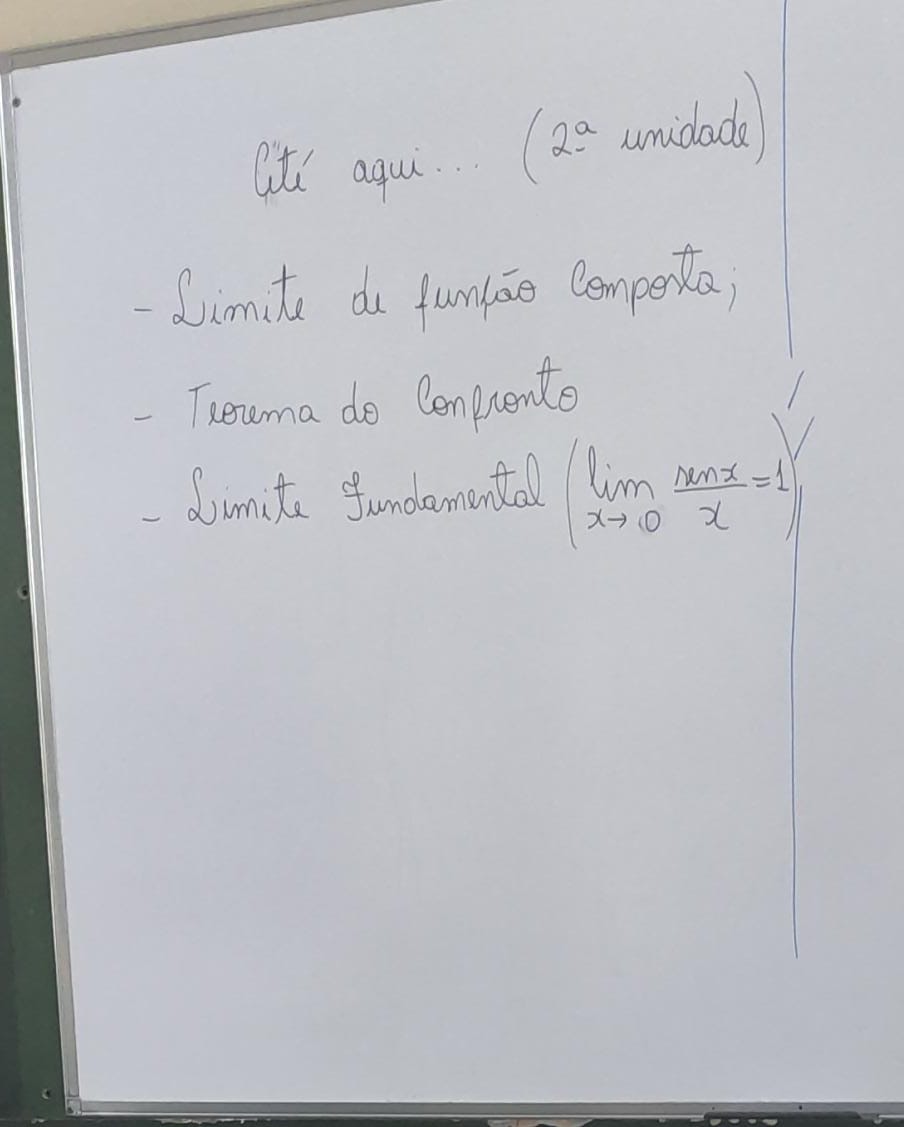 Até aqui... (2ª unidade)
- Limite de função Composta;
- Teorema do Confronto
- Limite Fundamental (lim x→0 sen x / x = 1)